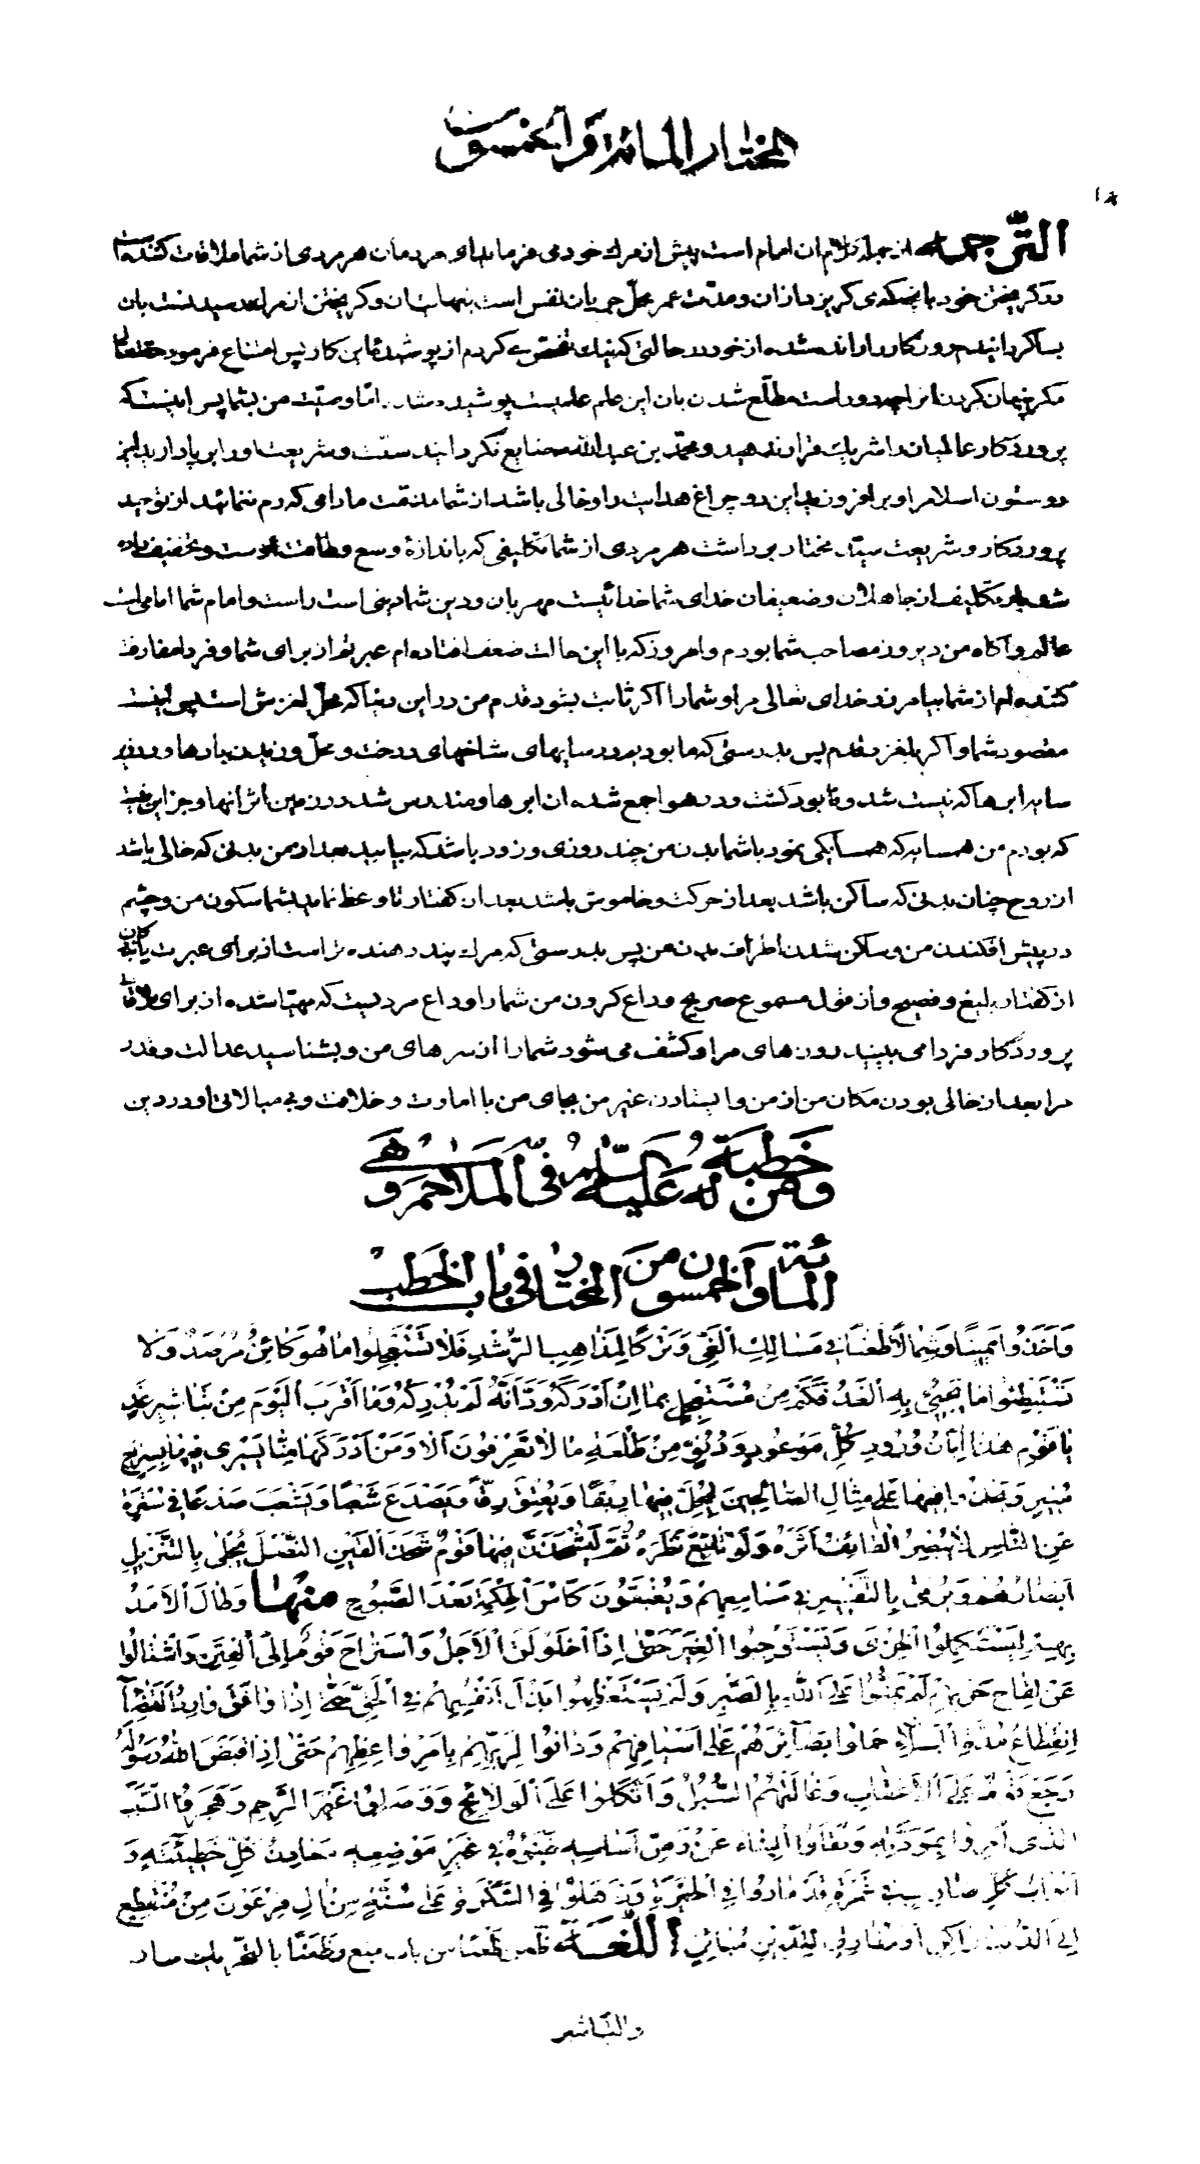 المختار المائة و الخمسون
١٨
الترجمة از جمله کلام آن امام است پیش از مرك خود می فرماید ای مردمان هر مردی از شما ملاقات کننده است
در گریختن خود بآنچه که می گریزد از آن و مدت عمر محل جریان نفس است بنهایت آن و گریختن از مرك رسیدنست بآن
بسا گردانیدم روزگار را رانده شده از خود در حالتی که نیك تفحص می کردم از پوشیدهای این کار پس امتناع فرمود حقتعالی
مگر پنهان کردن آنرا چه دور است مطلع شدن بآن این علم علمیست پوشیده شده. اما وصیت من بشما پس اینست که
پروردگار عالمیان را شریك قرار ندهید و محمد بن عبدالله ضایع نگردانید سنت و شریعت او را برپا دارید این
دو ستون اسلام را و برافروزید این دو چراغ هدایت را و خالی باشد از شما مذمت مادامی که رم ننمائید از توحید
پروردگار و شریعت سید مختار برداشت هر مردی از شما تکلیفی که باندازهٔ وسع و طاقت اوست و تخفیف داده
شد بار تکلیف از جاهلان و ضعیفان خدای شما خدائیست مهربان و دین شما دینی است راست و امام شما امامی است
عالم و آگاه من دیروز مصاحب شما بودم و امروز که با این حالت ضعف افتاده ام عبرتم از برای شما و فردا مفارقت
کننده ام از شما بیامرزد خدای تعالی مرا و شما را اگر ثابت بشود قدم من در این دنیا که محل لغزش است پس اینست
مقصود شما و اگر بلغزد قدم پس بدرستی که ما بودیم در سایهای شاخهای درخت و محل وزیدن بادها و در زیر
سایه ابرها که نیست شد و نابود گشت و در هوا جمع شده آن ابرها و مندرس شد در زمین اثر آنها و جز این نیست
که بودم من همسایه که همسایگی نمود با شما بدن من چند روزی و زود باشد که بیابید بعد از من بدنی که خالی باشد
از روح چنان بدنی که ساکن باشد بعد از حرکت و خاموش باشد بعد از گفتار تا وعظ نماید بشما سکون من و چشم
در پیش افکندن من و ساکن شدن اطراف بدن من پس بدرستی که مرك پند دهنده تر است از برای عبرت یابندگان
از گفتار بلیغ و فصیح و از قول مسموع صریح وداع کردن من شما را وداع مردیست که مهیا شده از برای ملاقات
پروردگار فردا می بینید روزهای مرا و کشف می شود شما را از سرهای من و بشناسید عدالت و قدر
مرا بعد از خالی بودن مکان من از من و ایستادن غیر من بجای من با امارت و خلافت و بی مبالاتی او در دین
و من خطبة له عليه السلام في الملاحم و هي
المائة و الخمسون من المختار في باب الخطب
وَأَخَذُوا يَمِينًا وَشِمَالًا طَعْنًا فِي مَسَالِكِ الْغَيِّ وَتَرْكًا لِمَذَاهِبِ الرُّشْدِ فَلَا تَسْتَعْجِلُوا مَا هُوَ كَائِنٌ مُرْصَدٌ وَلَا
تَسْتَبْطِئُوا مَا يَجِيئُ بِهِ الْغَدُ فَكَمْ مِنْ مُسْتَعْجِلٍ بِمَا إِنْ أَدْرَكَهُ وَدَّ أَنَّهُ لَمْ يُدْرِكْهُ وَمَا أَقْرَبَ الْيَوْمَ مِنْ تَبَاشِيرِ غَدٍ
يَا قَوْمِ هَذَا إِبَّانُ وُرُودِ كُلِّ مَوْعُودٍ وَدُنُوٍّ مِنْ طَلْعَةِ مَا لَا تَعْرِفُونَ أَلَا وَمَنْ أَدْرَكَهَا مِنَّا يَسْرِي فِيهَا بِسِرَاجٍ
مُنِيرٍ وَيَحْذُو فِيهَا عَلَى مِثَالِ الصَّالِحِينَ لِيَحُلَّ فِيهَا رِبْقًا وَيُعْتِقَ رِقًّا وَيَصْدَعَ شَعْبًا وَيَشْعَبَ صَدْعًا فِي سُتْرَةٍ
عَنِ النَّاسِ لَا يُبْصِرُ الْقَائِفُ أَثَرَهُ وَلَوْ تَابَعَ نَظَرَهُ ثُمَّ لَيُشْحَذَنَّ فِيهَا قَوْمٌ شَحْذَ الْقَيْنِ النَّصْلَ يُجْلَى بِالتَّنْزِيلِ
أَبْصَارُهُمْ وَيُرْمَى بِالتَّفْسِيرِ فِي مَسَامِعِهِمْ وَيُغْبَقُونَ كَأْسَ الْحِكْمَةِ بَعْدَ الصَّبُوحِ منها وَطَالَ الْأَمَدُ
بِهِمْ لِيَسْتَكْمِلُوا الْخِزْيَ وَيَسْتَوْجِبُوا الْغِيَرَ حَتَّى إِذَا اخْلَوْلَقَ الْأَجَلُ وَاسْتَرَاحَ قَوْمٌ إِلَى الْفِتَنِ وَاشْتَالُوا
عَنْ لِقَاحِ حَرْبِهِمْ لَمْ يَمُنُّوا عَلَى اللهِ بِالصَّبْرِ وَلَمْ يَسْتَعْظِمُوا بَذْلَ أَنْفُسِهِمْ فِي الْحَقِّ حَتَّى إِذَا وَافَقَ وَارِدُ الْقَضَاءِ
انْقِطَاعَ مُدَّةِ الْبَلَاءِ حَمَلُوا بَصَائِرَهُمْ عَلَى أَسْيَافِهِمْ وَدَانُوا لِرَبِّهِمْ بِأَمْرِ وَاعِظِهِمْ حَتَّى إِذَا قَبَضَ اللهُ رَسُولَهُ
رَجَعَ قَوْمٌ عَلَى الْأَعْقَابِ وَغَالَتْهُمُ السُّبُلُ وَاتَّكَلُوا عَلَى الْوَلَائِجِ وَوَصَلُوا غَيْرَ الرَّحِمِ وَهَجَرُوا السَّبَبَ
الَّذِي أُمِرُوا بِمَوَدَّتِهِ وَنَقَلُوا الْبِنَاءَ عَنْ رَصِّ أَسَاسِهِ فَبَنَوْهُ فِي غَيْرِ مَوْضِعِهِ مَعَادِنُ كُلِّ خَطِيئَةٍ وَ
أَبْوَابُ كُلِّ ضَارِبٍ فِي غَمْرَةٍ قَدْ مَارُوا فِي الْحَيْرَةِ وَذَهَلُوا فِي السَّكْرَةِ عَلَى سُنَّةٍ مِنْ آلِ فِرْعَوْنَ مِنْ مُنْقَطِعٍ
إِلَى الدُّنْيَا رَاكِنٍ أَوْ مُفَارِقٍ لِلدِّينِ مُبَائِنٍ اللغة ظعن ظعنا من باب منع وظعنا بالتحريك سار
والتباشير